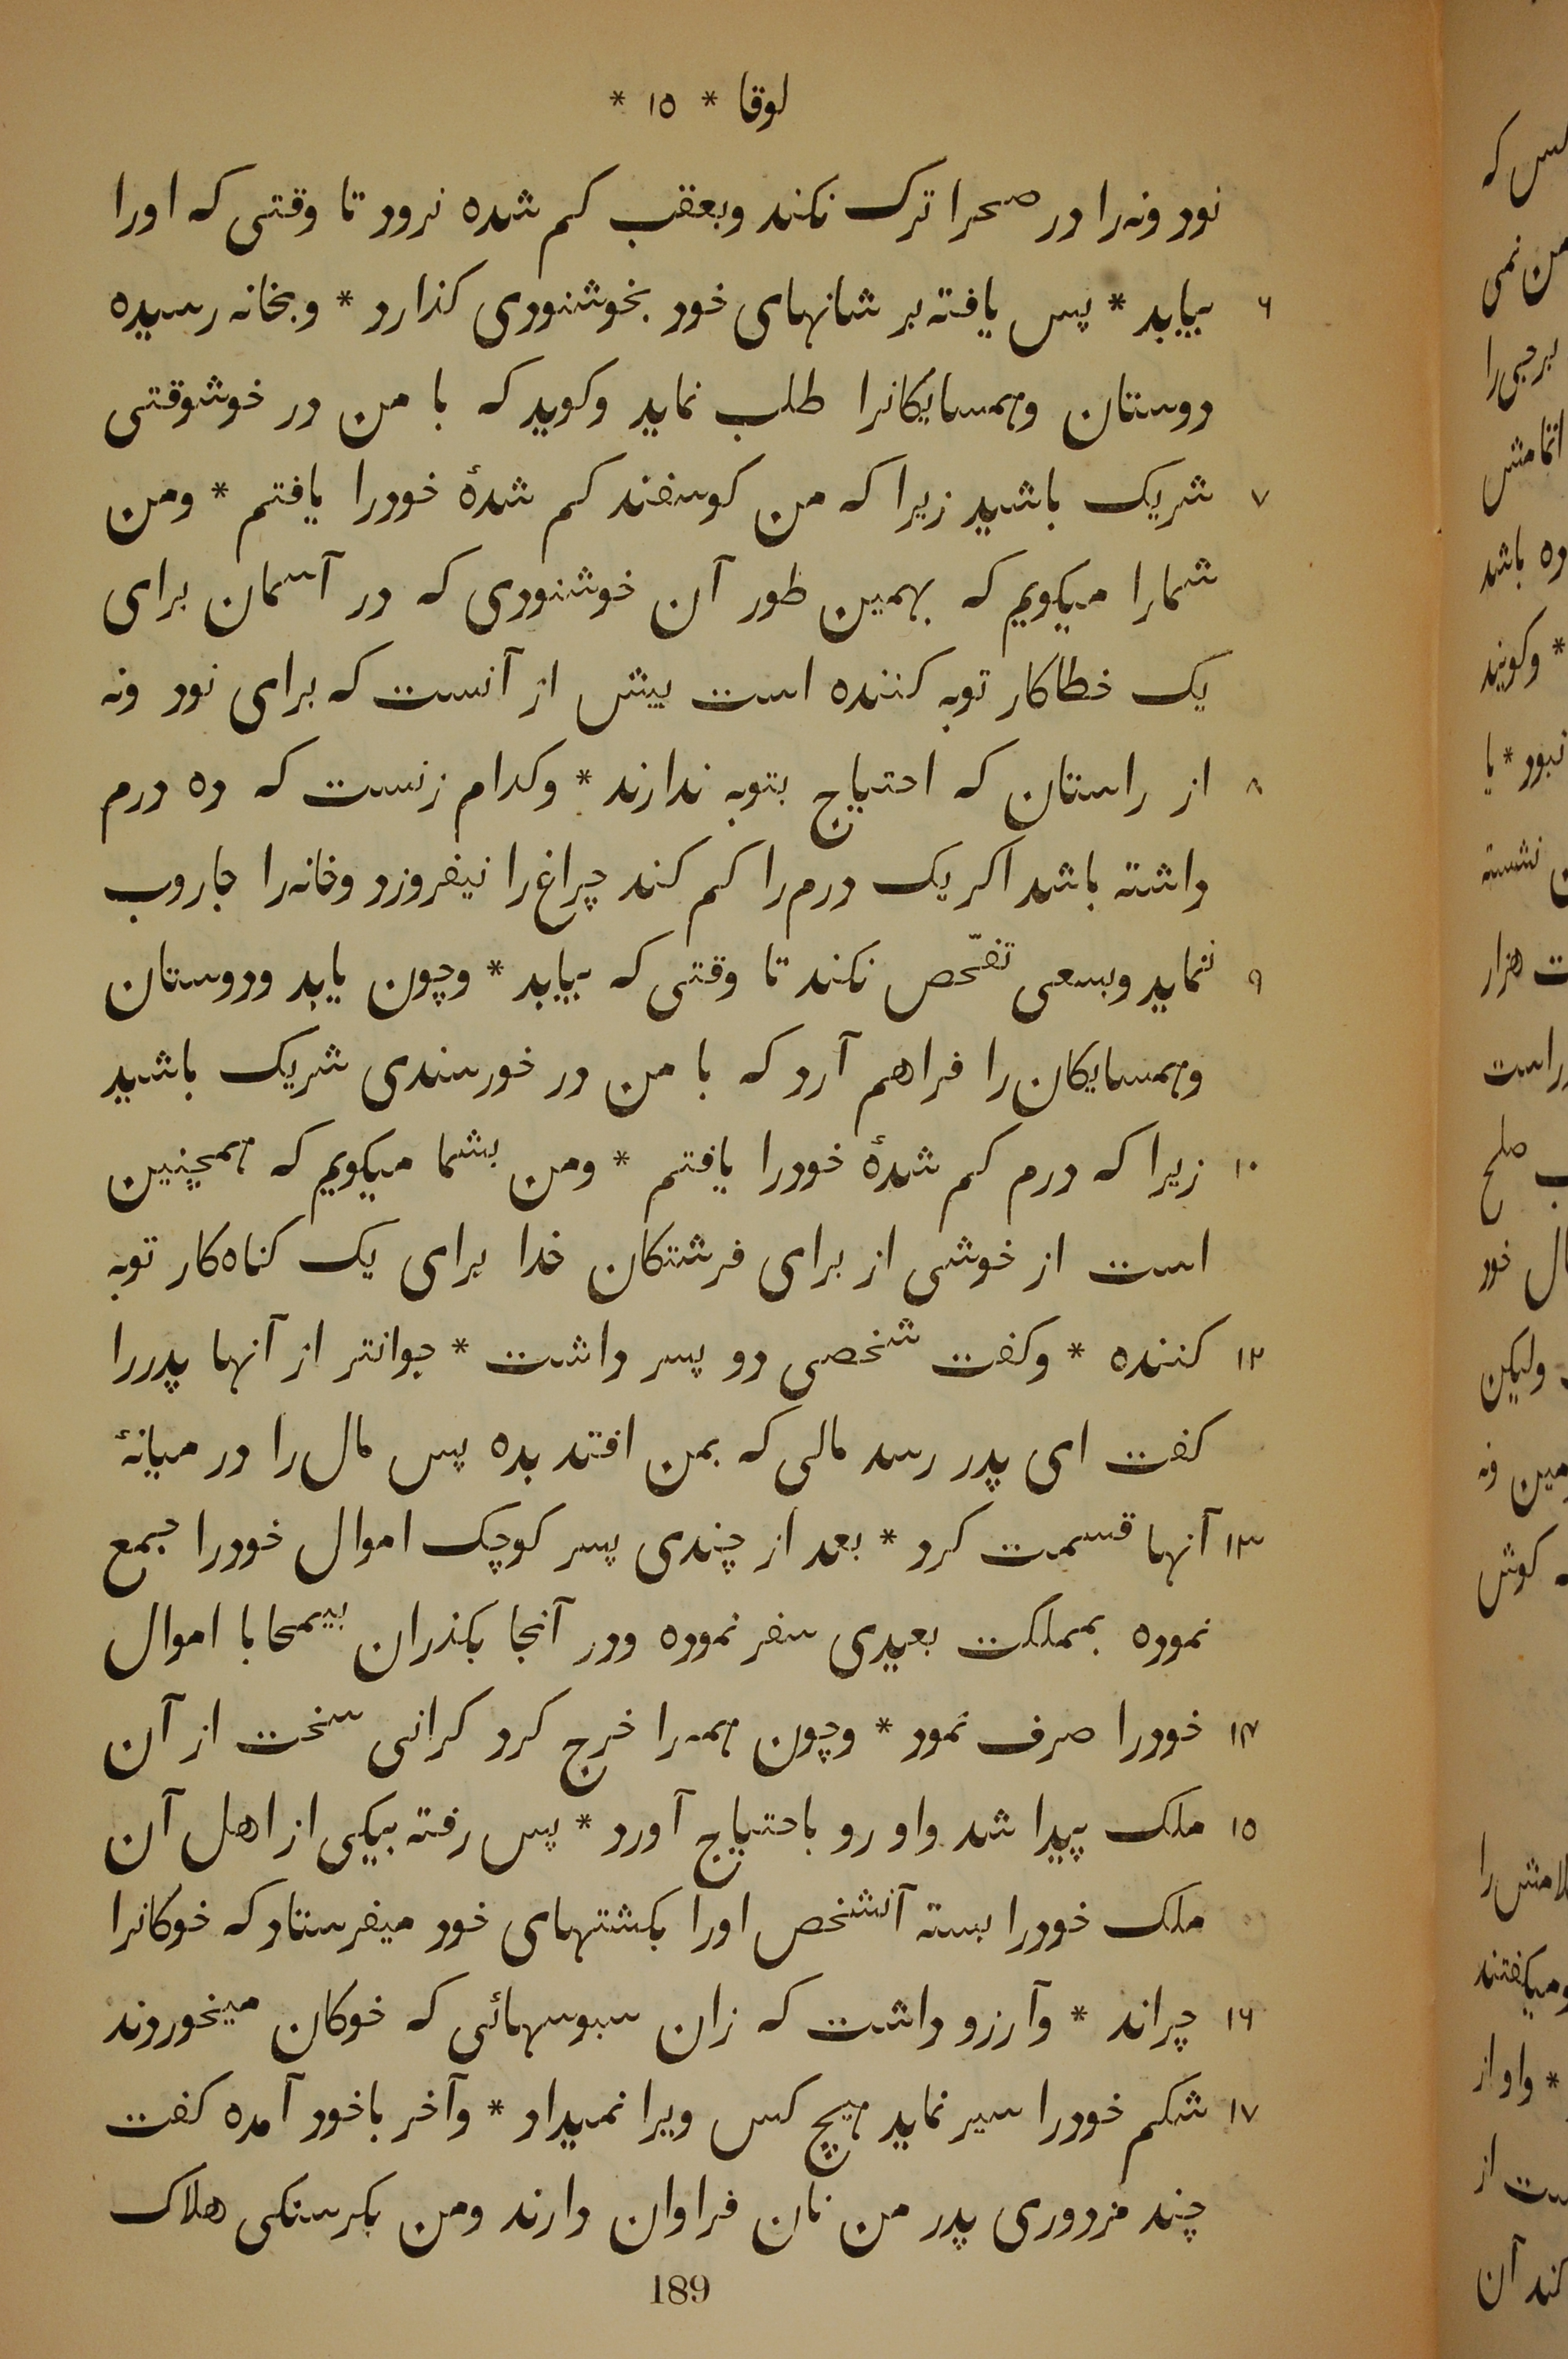 لوقا * ۱۵ *
نود ونه‌را در صحرا ترک نکند وبعقب کم شده نرود تا وقتی که اورا
۶ بیابد * پس یافته بر شانهای خود بخوشنودی کذارد * وبخانه رسیده
دوستان وهمسایکانرا طلب نماید وکوید که با من در خوشوقتی
۷ شریک باشید زیرا که من کوسفند کم شدهٔ خودرا یافتم * ومن
شمارا میکویم که بهمین طور آن خوشنودی که در آسمان برای
یک خطاکار توبه کننده است بیش از آنست که برای نود ونه
۸ از راستان که احتیاج بتوبه ندارند * وکدام زنست که ده درم
داشته باشد اکر یک درم‌را کم کند چراغ‌را نیفروزد وخانه‌را جاروب
۹ ننماید وبسعی تفحّص نکند تا وقتی که بیابد * وچون یابد ودوستان
وهمسایکان‌را فراهم آرد که با من در خورسندی شریک باشید
۱۰ زیرا که درم کم شدهٔ خودرا یافتم * ومن بشما میکویم که همچنین
است از خوشی از برای فرشتکان خدا برای یک کناه‌کار توبه
۱۲ کننده * وکفت شخصی دو پسر داشت * جوانتر از آنها پدررا
کفت ای پدر رسد مالی که بمن افتد بده پس مال‌را در میانهٔ
۱۳ آنها قسمت کرد * بعد از چندی پسر کوچک اموال خودرا جمع
نموده بمملکت بعیدی سفر نموده ودر آنجا بکذران بیمحابا اموال
۱۴ خودرا صرف نمود * وچون همه‌را خرج کرد کرانی سخت از آن
۱۵ ملک پیدا شد واو رو باحتیاج آورد * پس رفته بیکی از اهل آن
ملک خودرا بسته آنشخص اورا بکشتهای خود میفرستاد که خوکانرا
۱۶ چراند * وآرزو داشت که زان سبوسهائی که خوکان میخوردند
۱۷ شکم خودرا سیر نماید هیچ کس ویرا نمیداد * وآخر باخود آمده کفت
چند مزدوری پدر من نان فراوان دارند ومن بکرسنکی هلاک
189